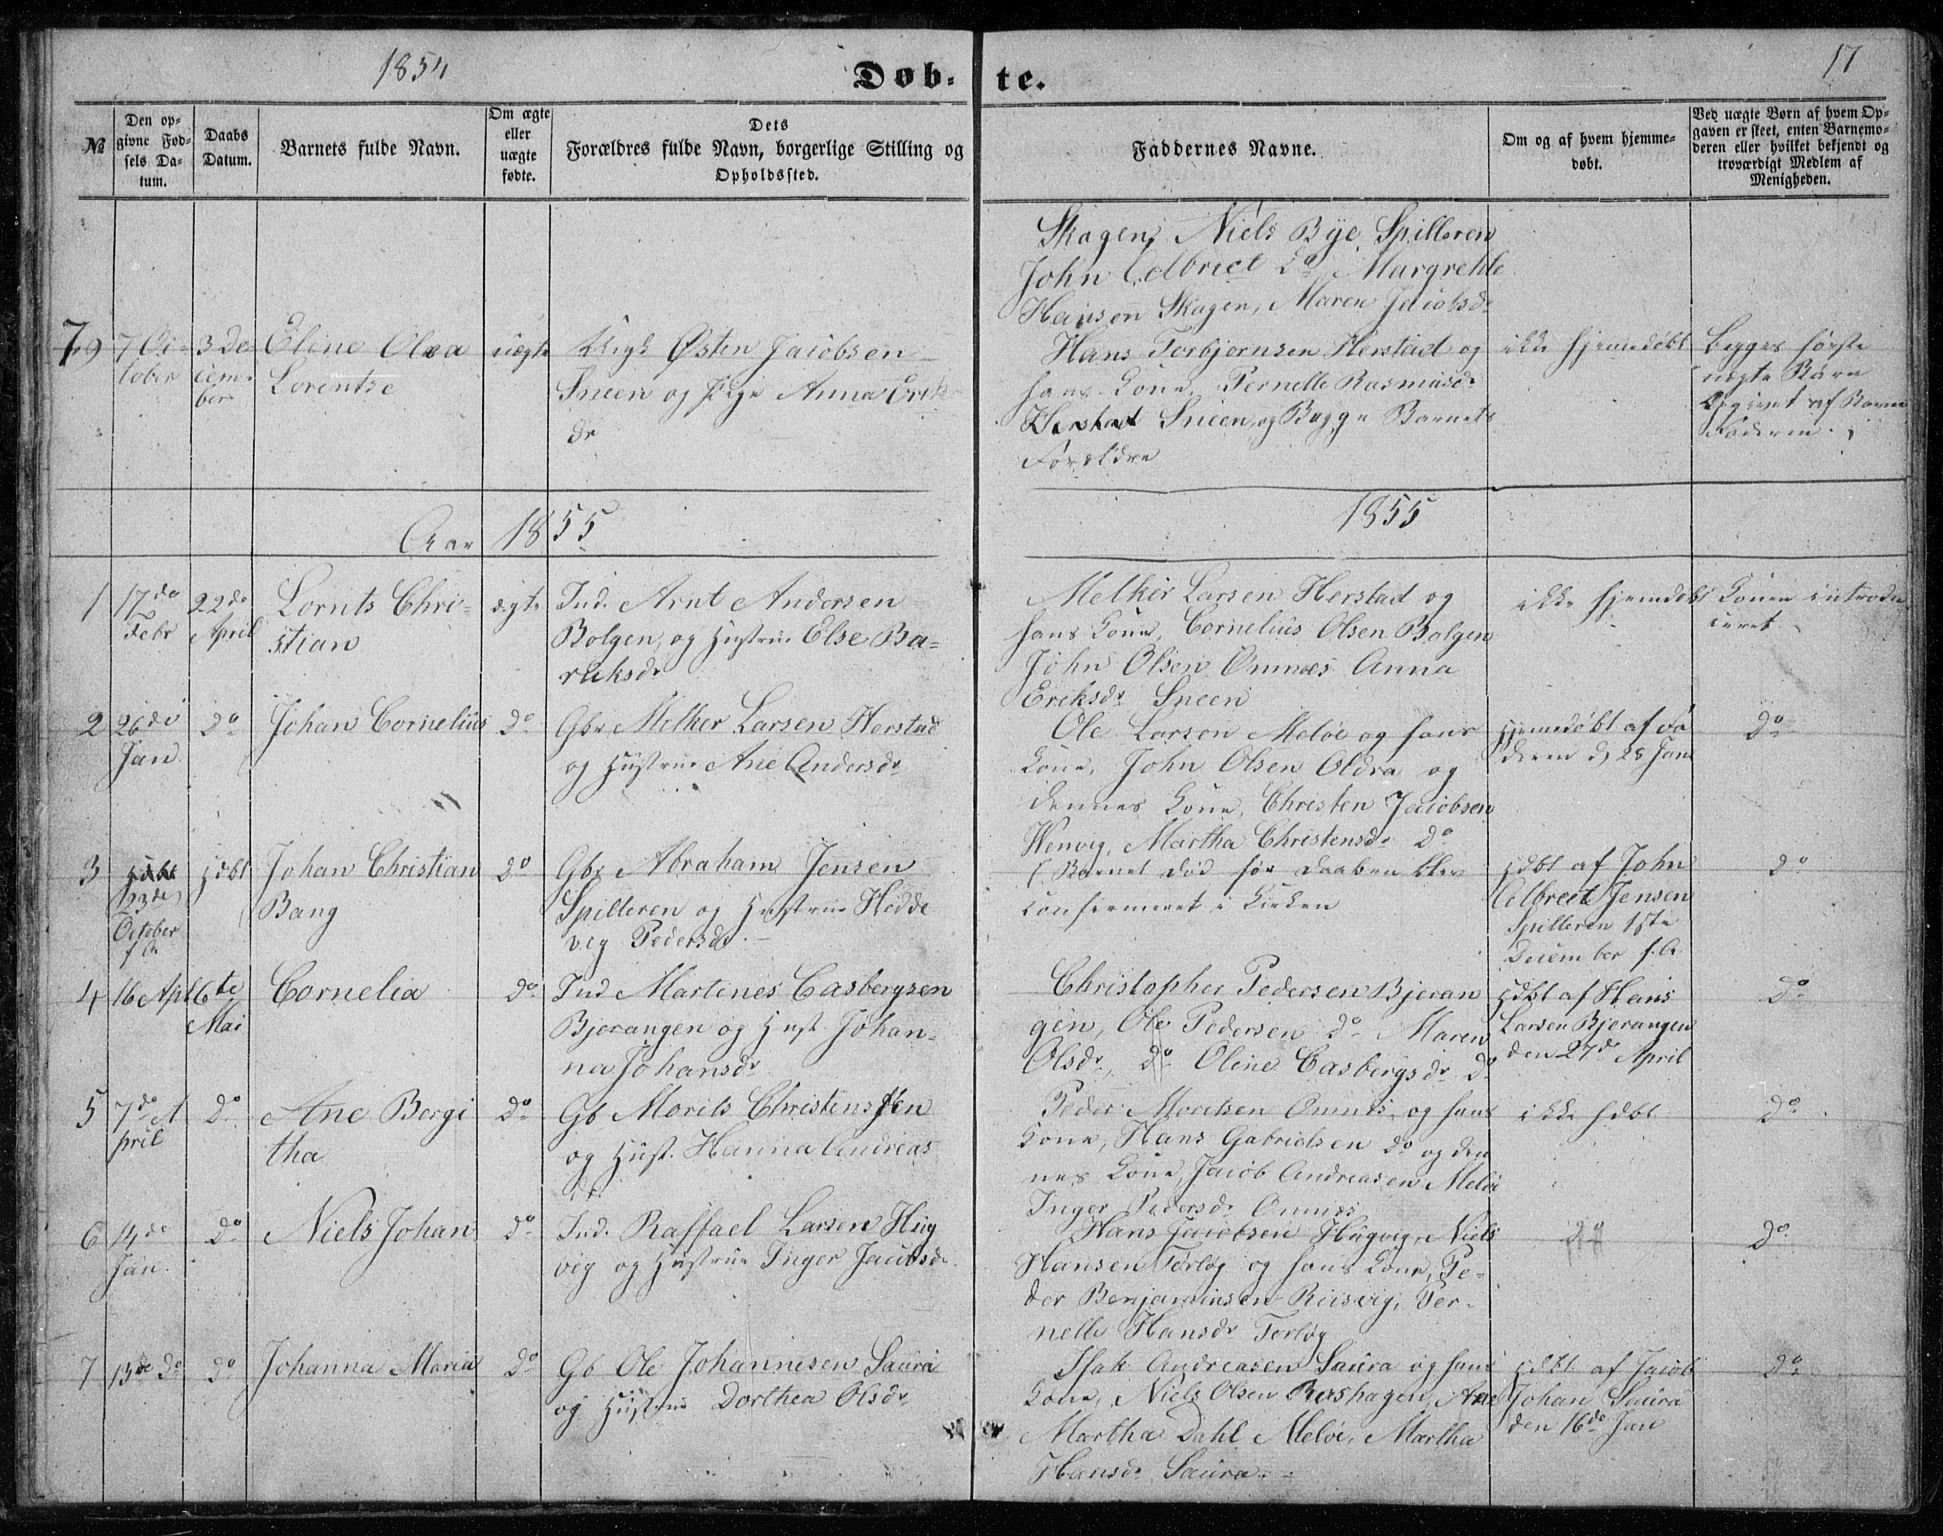 1854
17
Døb-te.
№
Den opgivne Fødsels Datum.
Daabs Datum.
Barnets fulde Navn.
Om ægte eller uægte fødte.
Dets Forældres fulde Navn, borgerlige Stilling og Opholdssted.
Faddernes Navne.
Om og af hvem hjemmedøbt.
Ved uægte Børn af hvem Opgaven er skeet, enten Barnemoderen eller hvilket bekjendt og troværdigt Medlem af Menigheden.
Skagen, Niels Bye Spilleren
John Albrict do Margrethe
Hansen Skagen, Maren Jacobsdr
79
7 Oc-
tober
3 De-
cem-
ber
Eline Olea
Lorentse
uægte
Ungk Østen Jacobsen
Sneen og Pige Anna Eriks
dr
Hans Torbjørnsen Herstad og
hans Kone, Pernelle Rasmusdr
Herstad Sneen, og Begge Barnets
Forældre
ikke hjemedøbt
Begges første
uægte Barn
Opgivet af Barne
Faderen.
Aar 1855
1855
1
17de
Febr
22de
April
Lornts Chri-
stian
ægte
Ind. Arnt Andersen
Bolgen, og Hustrue Else Ba-
reksdr
Melker Larsen Herstad og
hans Kone, Cornelius Olsen Bolgen
John Olsen Omnæs Anna
Eriksdr Sneen
ikke hjemdøbt
Konen introdu
ceret.
2
26de
Jan
do
Johan Cornelius
do
Gbr Melker Larsen Herstad
og Hustrue Ane Andersdr
Ole Larsen Meløe og hans
Kone, John Olsen Oldra og
dennes Kone, Christen Jacobsen
Wenvig, Martha Christensdr do
Hjemedøbt af Fa
deren d 28 Jan
do
3
23de
October
f A
Hdbt
Johan Christian
Bang
do
Gbr Abraham Jensen
Spilleren og Hustrue Hedde
vig Pedersdr.
(Barnet død før Daaben blev
confirmeret i Kirken
Hdbt af John
Albrect Jensen
Spilleren 1ste
December f.A
do
4
16 Apl
6te
Mai
Cornelia
do
Ind Martines Casbergsen
Bjerangen og Hust Johan-
na Johansdr
Christopher Pedersen Bjeran
gen, Ole Pedersen do Maren
Olsdr, do Oline Casbergsdr do
Hdbt af Hans
Larsen Bjerangen
den 27de April
do
5
7de A
pril
do
Ane Bergi
tha
do
Gb Morits Christensen
og Hust. Hanna Andreas
dr
Peder Moritsen Omnes og hans
Kone, Hans Gabrielsen do og den
nes Kone, Jacob Andreasen Meløe
Inger Pedersdr Omnæs
ikke Hdbt
do
6
14de
Jan.
do
Niels Johan
do
Ind. Raffael Larsen Hug
vig og Hustrue Inger Jacobsdr
Hans Jacobsen Hugvig, Niels
Hansen Terløg og hans Kone, Pe-
der Benjaminsen Riisvig, Per-
nelle Hansdr Terløg
do
do
7
13de do
do
Johanna Maria
do
Gb Ole Johannesen Saura
og Hustrue Dorthea Olsdr
Isak Andreasen Saura og hans
Kone, Niels Olsen Reishagen, Ane
Martha Dahl Meløe, Martha
Hansdr Saura.
Hdbt af Jacob
Johan Saura
den 16de Jan
do